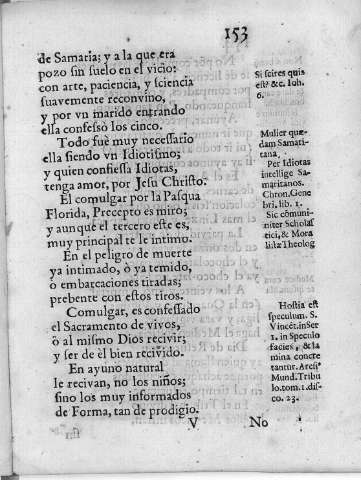 153
de Samaria; y a la que era
pozo sin suelo en el vicio:
con arte, paciencia, y sciencia
suavemente reconvino,
y por vn marido entrando
ella confessò los cinco.
Todo fuè muy necessario
ella siendo vn Idiotismo;
y quien confiessa Idiotas,
tenga amor, por Jesu Christo.
El comulgar por la Pasqua
Florida, Precepto es miro;
y aunque el tercero este es,
muy principal te le intimo.
En el peligro de muerte
ya intimado, ò ya temido,
ò embarcaciones tiradas;
prebente con estos tiros.
Comulgar, es confessado
el Sacramento de vivos,
ò al mismo Dios recivir;
y ser de èl bien recivido.
En ayuno natural
le recivan, no los niños;
sino los muy informados
de Forma, tan de prodigio.
V No
Si scires quis
est? &c. Ioh.
6.
Mulier quæ-
dam Samati-
tana.
Per Idiotas
intellige Sa-
maritanos.
Chron. Gene
bri. lib. 1.
Sic cõmuni-
niter Scholas
tici, & Mora
Theolog
Hostia est
speculum. S.
Vincẽt. in Ser
1. in Speculo
facies, & la
mina concre
tantur. Aresi⁹
Mund. Tribu
lo. tom. 1. dis-
co. 23.